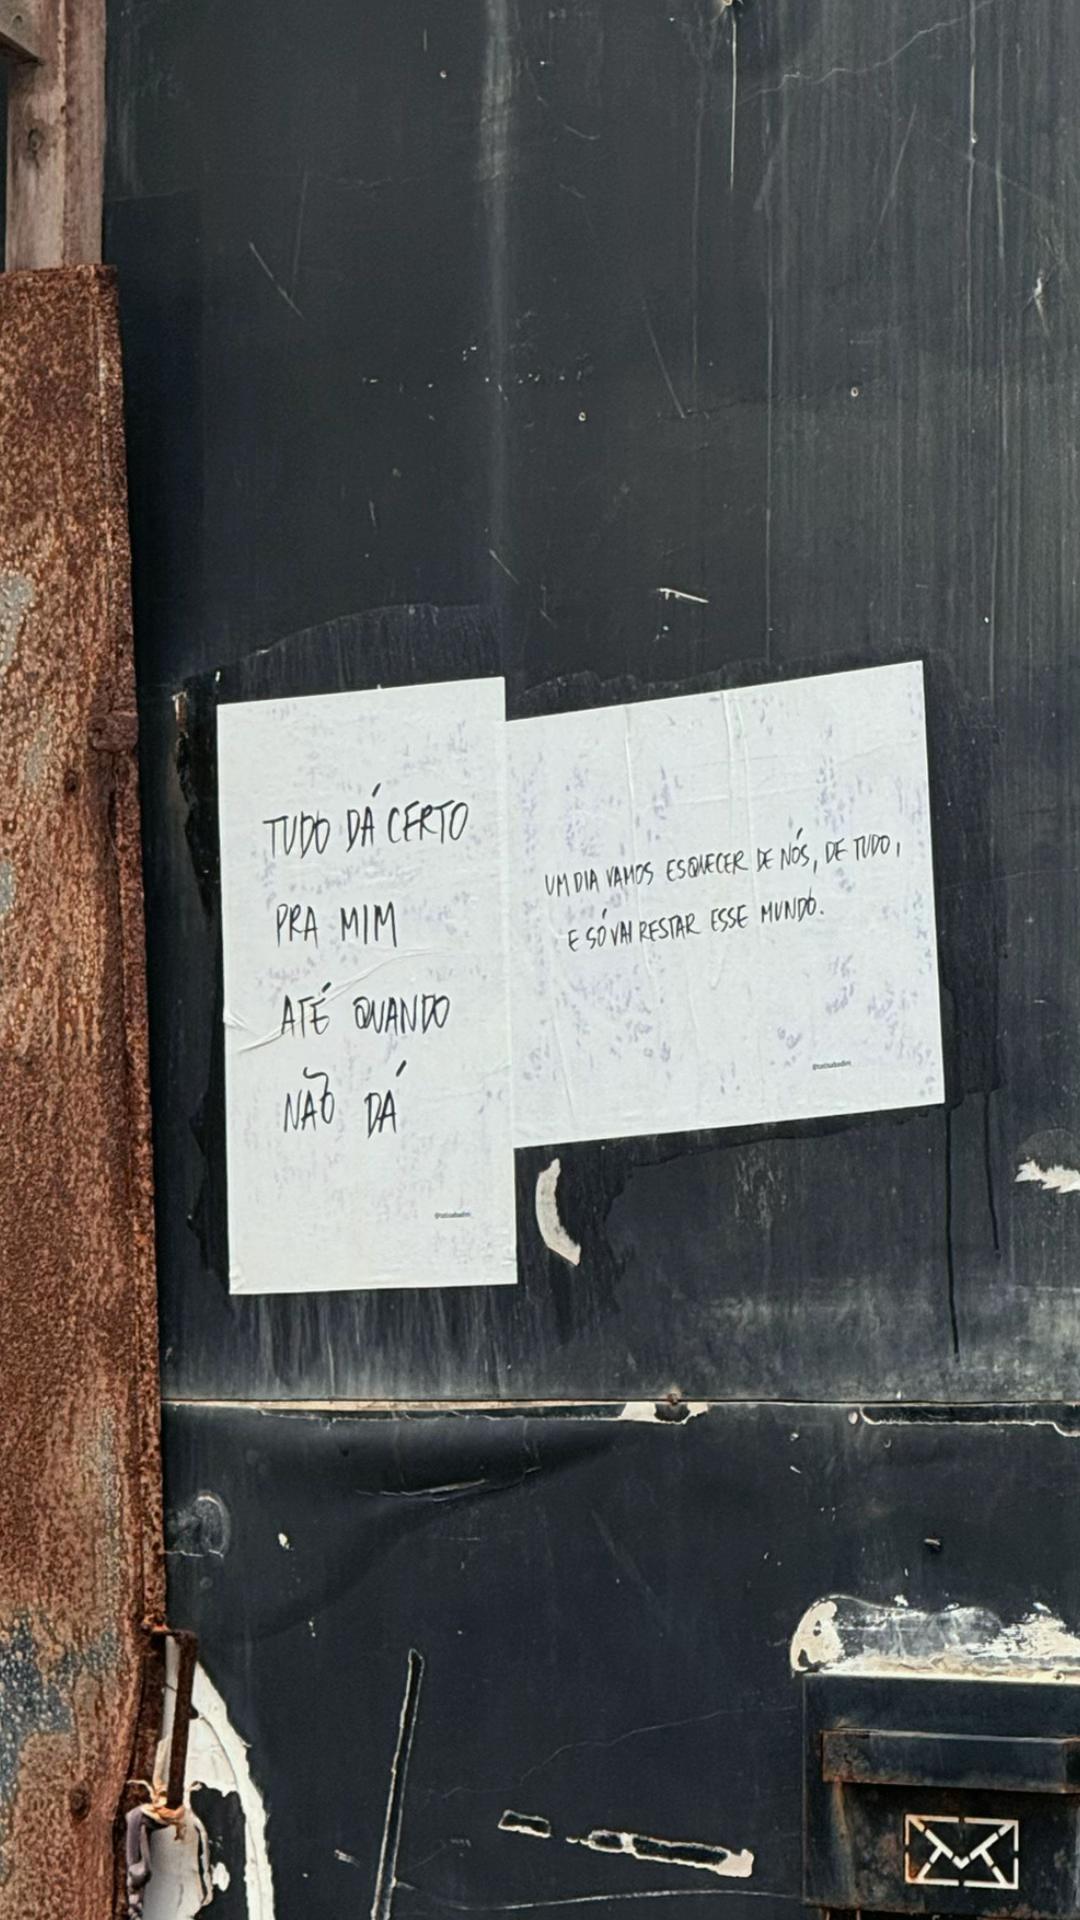 TUDO DÁ CERTO
PRA MIM
ATÉ QUANDO
NÃO DÁ
UM DIA VAMOS ESQUECER DE NÓS, DE TUDO,
E SÓ VAI RESTAR ESSE MUNDO.